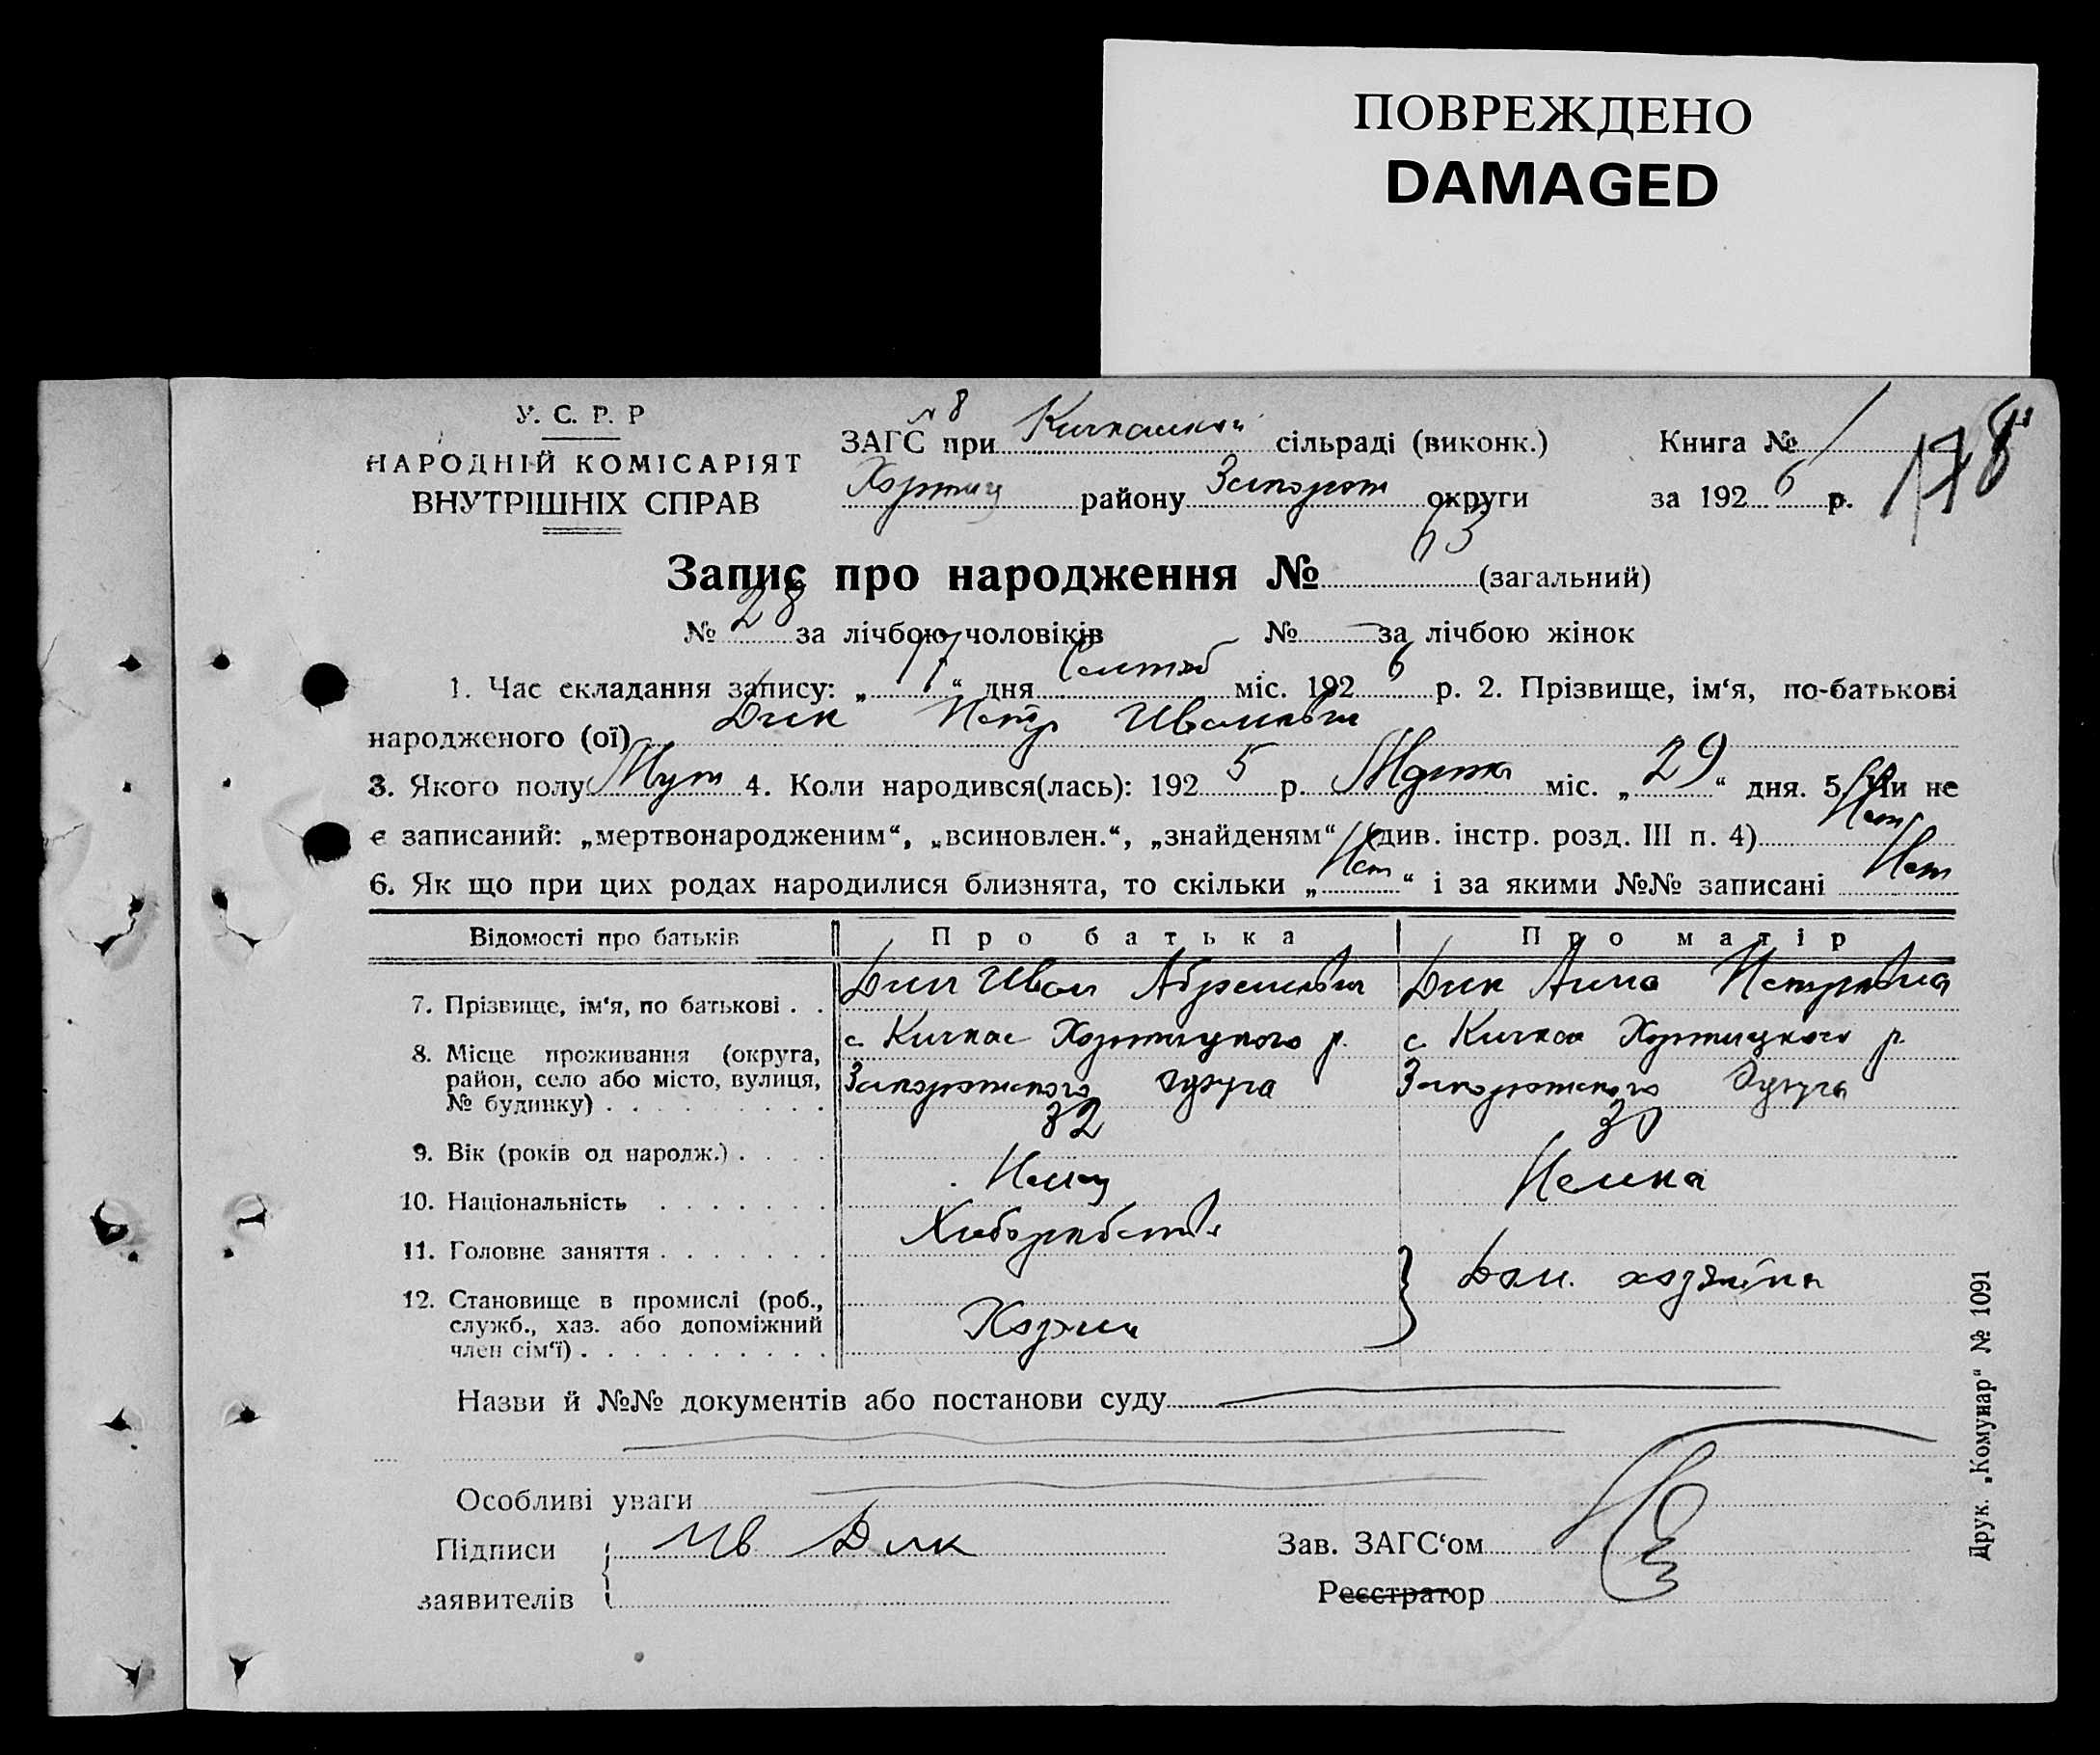 ПОВРЕЖДЕНО
DAMAGED
У. С. Р. Р
НАРОДНІЙ КОМІСАРІЯТ
ВНУТРІШНІХ СПРАВ
№ 8
ЗАГС при Кичкасской сільраді (виконк.)
Хортиц району Запорож округи
Книга № 1
за 1926 р.
178
Запис про народження № 63 (загальний)
№ 28 за лічбою чоловіків № — за лічбою жінок
1. Час складання запису: „17“ дня Сентяб міс. 1926 р. 2. Прізвище, ім‘я, по-батькові
народженого (ої) Дик Петр Иванович
3. Якого полу Муж 4. Коли народився(лась): 1925 р. Марта міс. „29“ дня. 5. Чи не
є записаний: „мертвонародженим“, „всиновлен.“, „знайденям“ (див. інстр. розд. III п. 4) Нет
6. Як що при цих родах народилися близнята, то скільки „Нет“ і за якими №№ записані Нет
Відомості про батьків Про батька Про матір
7. Прізвище, ім‘я, по батькові . . Дик Иван Абрамович Дик Анна Петровна
8. Місце проживання (округа, район, село або місто, вулиця, № будинку) . . . . . . . . .
с. Кичкас Хортицкого р. Запорожского округа
с Кичкас Хортицкого р. Запорожского округа
9. Вік (років од народж.) . . . . 32 30
10. Національність . . . . . . . Немец Немка
11. Головне заняття . . . . . . . Хлебопашество
12. Становище в промислі (роб., служб., хаз. або допоміжний член сім‘ї) . . . . . . . . . .
Хозяин
Дом. хозяйка
Назви й №№ документів або постанови суду
Особливі уваги
Підписи
заявителів
Ив Дик
Зав. ЗАГС‘ом
Реєстратор
Друк. „Комунар“ № 1091